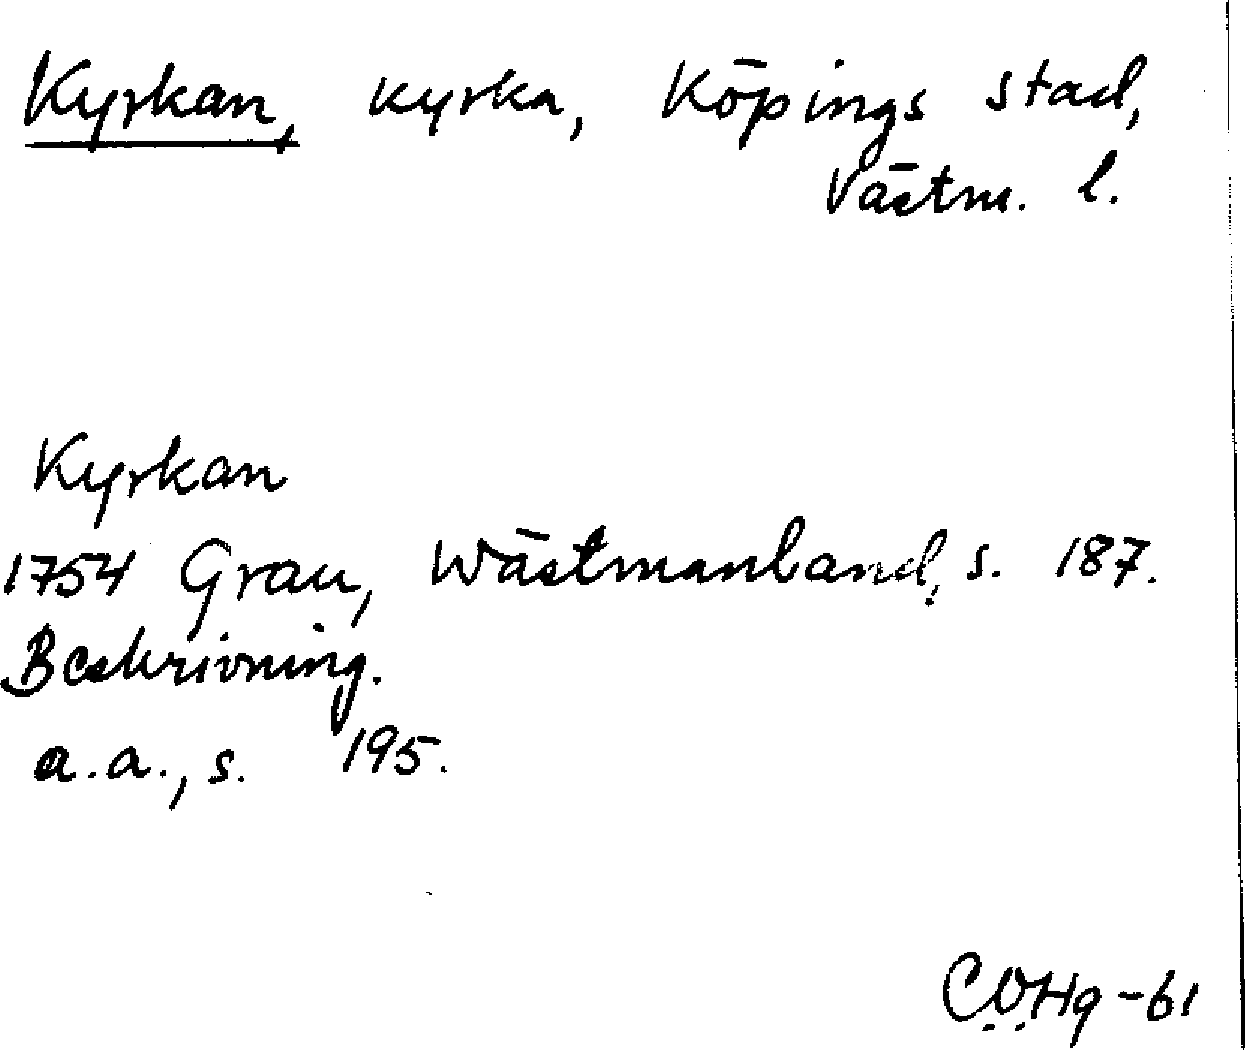 Kyrkan, kyrka, Köpings stad,
Västm. l.
Kyrkan
1754 Grau, Wästmanland, s. 187.
Beskrivning.
a.a., s. 195.
C.O.Hg-61